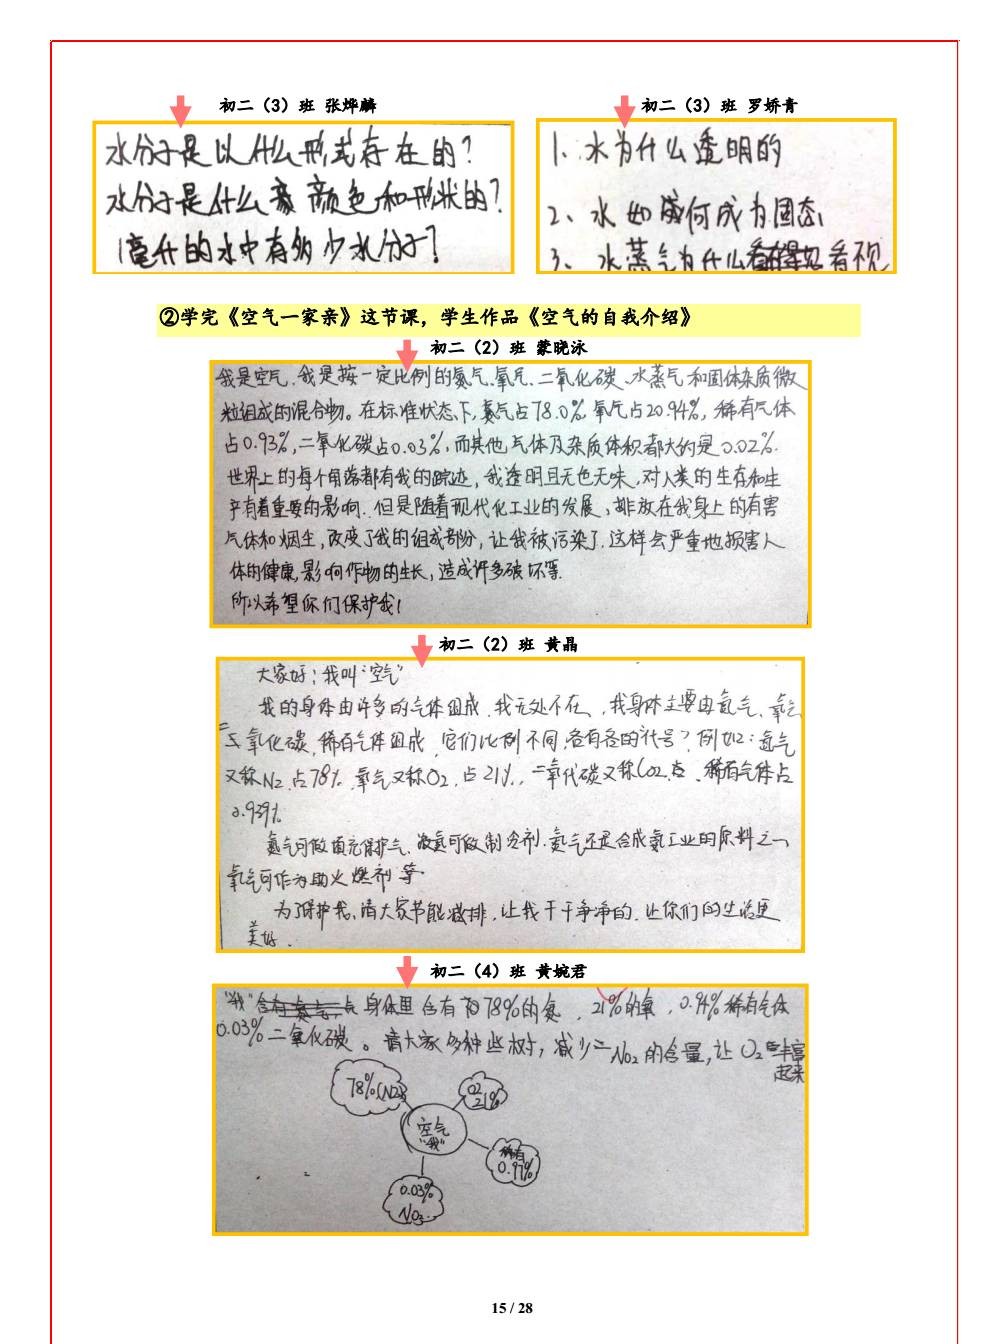 初二（3）班 张烨麟
水分子是以什么形式存在的？
水分子是什么颜色和形状的？
1毫升的水中有多少水分子？
初二（3）班 罗娇青
1、水为什么透明的
2、水如何成为固态
3、水蒸气为什么看不见
②学完《空气一家亲》这节课，学生作品《空气的自我介绍》
初二（2）班 蒙晓泳
我是空气，我是按一定比例的氮气、氧气、二氧化碳、水蒸气和固体杂质微
粒组成的混合物。在标准状态下，氮气占78.0%，氧气占20.94%，稀有气体
占0.93%，二氧化碳占0.03%，而其他气体及杂质体积都大约是0.02%.
世界上的每个角落都有我的踪迹，我透明且无色无味，对人类的生存和生
产有着重要的影响. 但是随着现代化工业的发展，排放在我身上的有害
气体和烟尘，改变了我的组成部分，让我被污染了. 这样会严重地损害人
体的健康，影响作物的生长，造成许多破坏等.
所以希望你们保护我！
初二（2）班 黄晶
大家好！我叫“空气”
我的身体由许多的气体组成，我无处不在，我身体主要由氮气、氧气
二氧化碳、稀有气体组成，它们比例不同，各有各的“代号”，例如：氮气
又称N2，占78%，氧气又称O2，占21%，二氧代碳又称CO2，占、稀有气体占
0.939%
氮气可做填充保护气、液氮可做制冷剂. 氮气还是合成氨工业的原料之一
氧气可作为助火燃剂等
为了保护我，请大家节能减排，让我干干净净的，让你们的生活更
美好.
初二（4）班 黄婉君
“我”身体里含有78%的氮，21%的氧，0.94%稀有气体
0.03%二氧化碳。请大家多种些树，减少NO2的含量，让O2丰富
起来
78%(N2)
O2
21%
空气
“我”
稀有
0.97%
0.03%
NO2
15 / 28